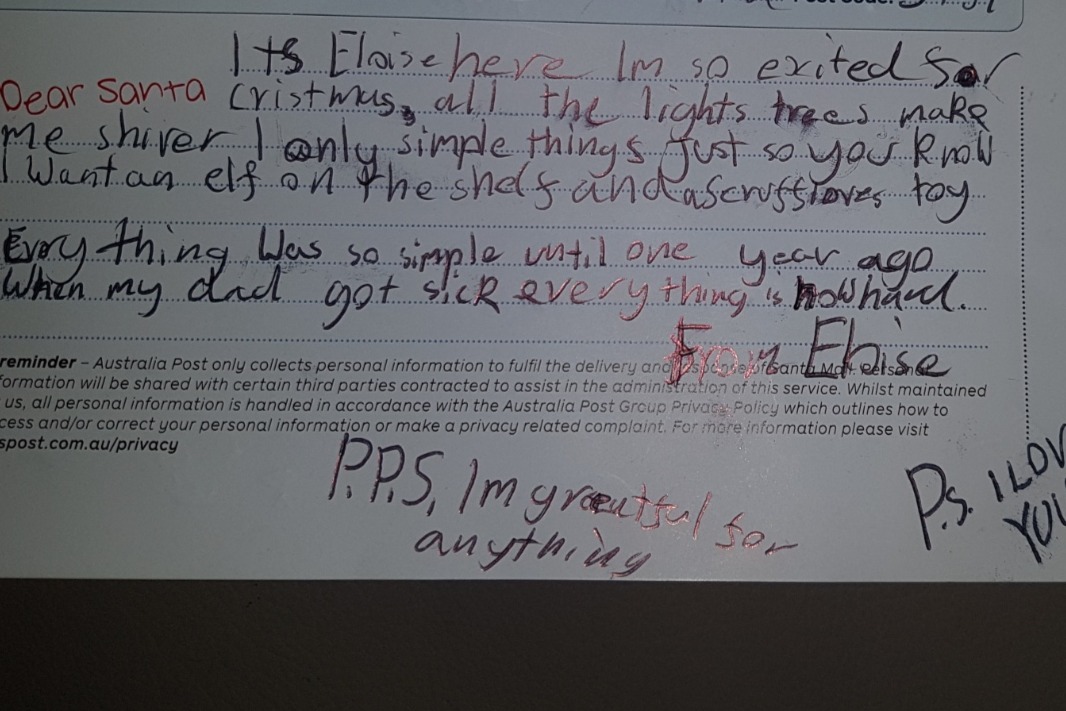 Its Eloise here Im so exited for
Dear Santa Cristmas, all the lights trees make
me shiver I only simple things just so you know
I Want an elf on the shelf and a scruffloves toy
Every thing Was so simple until one year ago
When my dad got sick every thing is now hard.
From Eloise
reminder – Australia Post only collects personal information to fulfil the delivery and
ormation will be shared with certain third parties contracted to assist in the administration of this service. Whilst maintained
us, all personal information is handled in accordance with the Australia Post Group Privacy Policy which outlines how to
cess and/or correct your personal information or make a privacy related complaint. For more information please visit
spost.com.au/privacy
P.P.S, Im greatful for
anything
P.s. I LOV
YOU